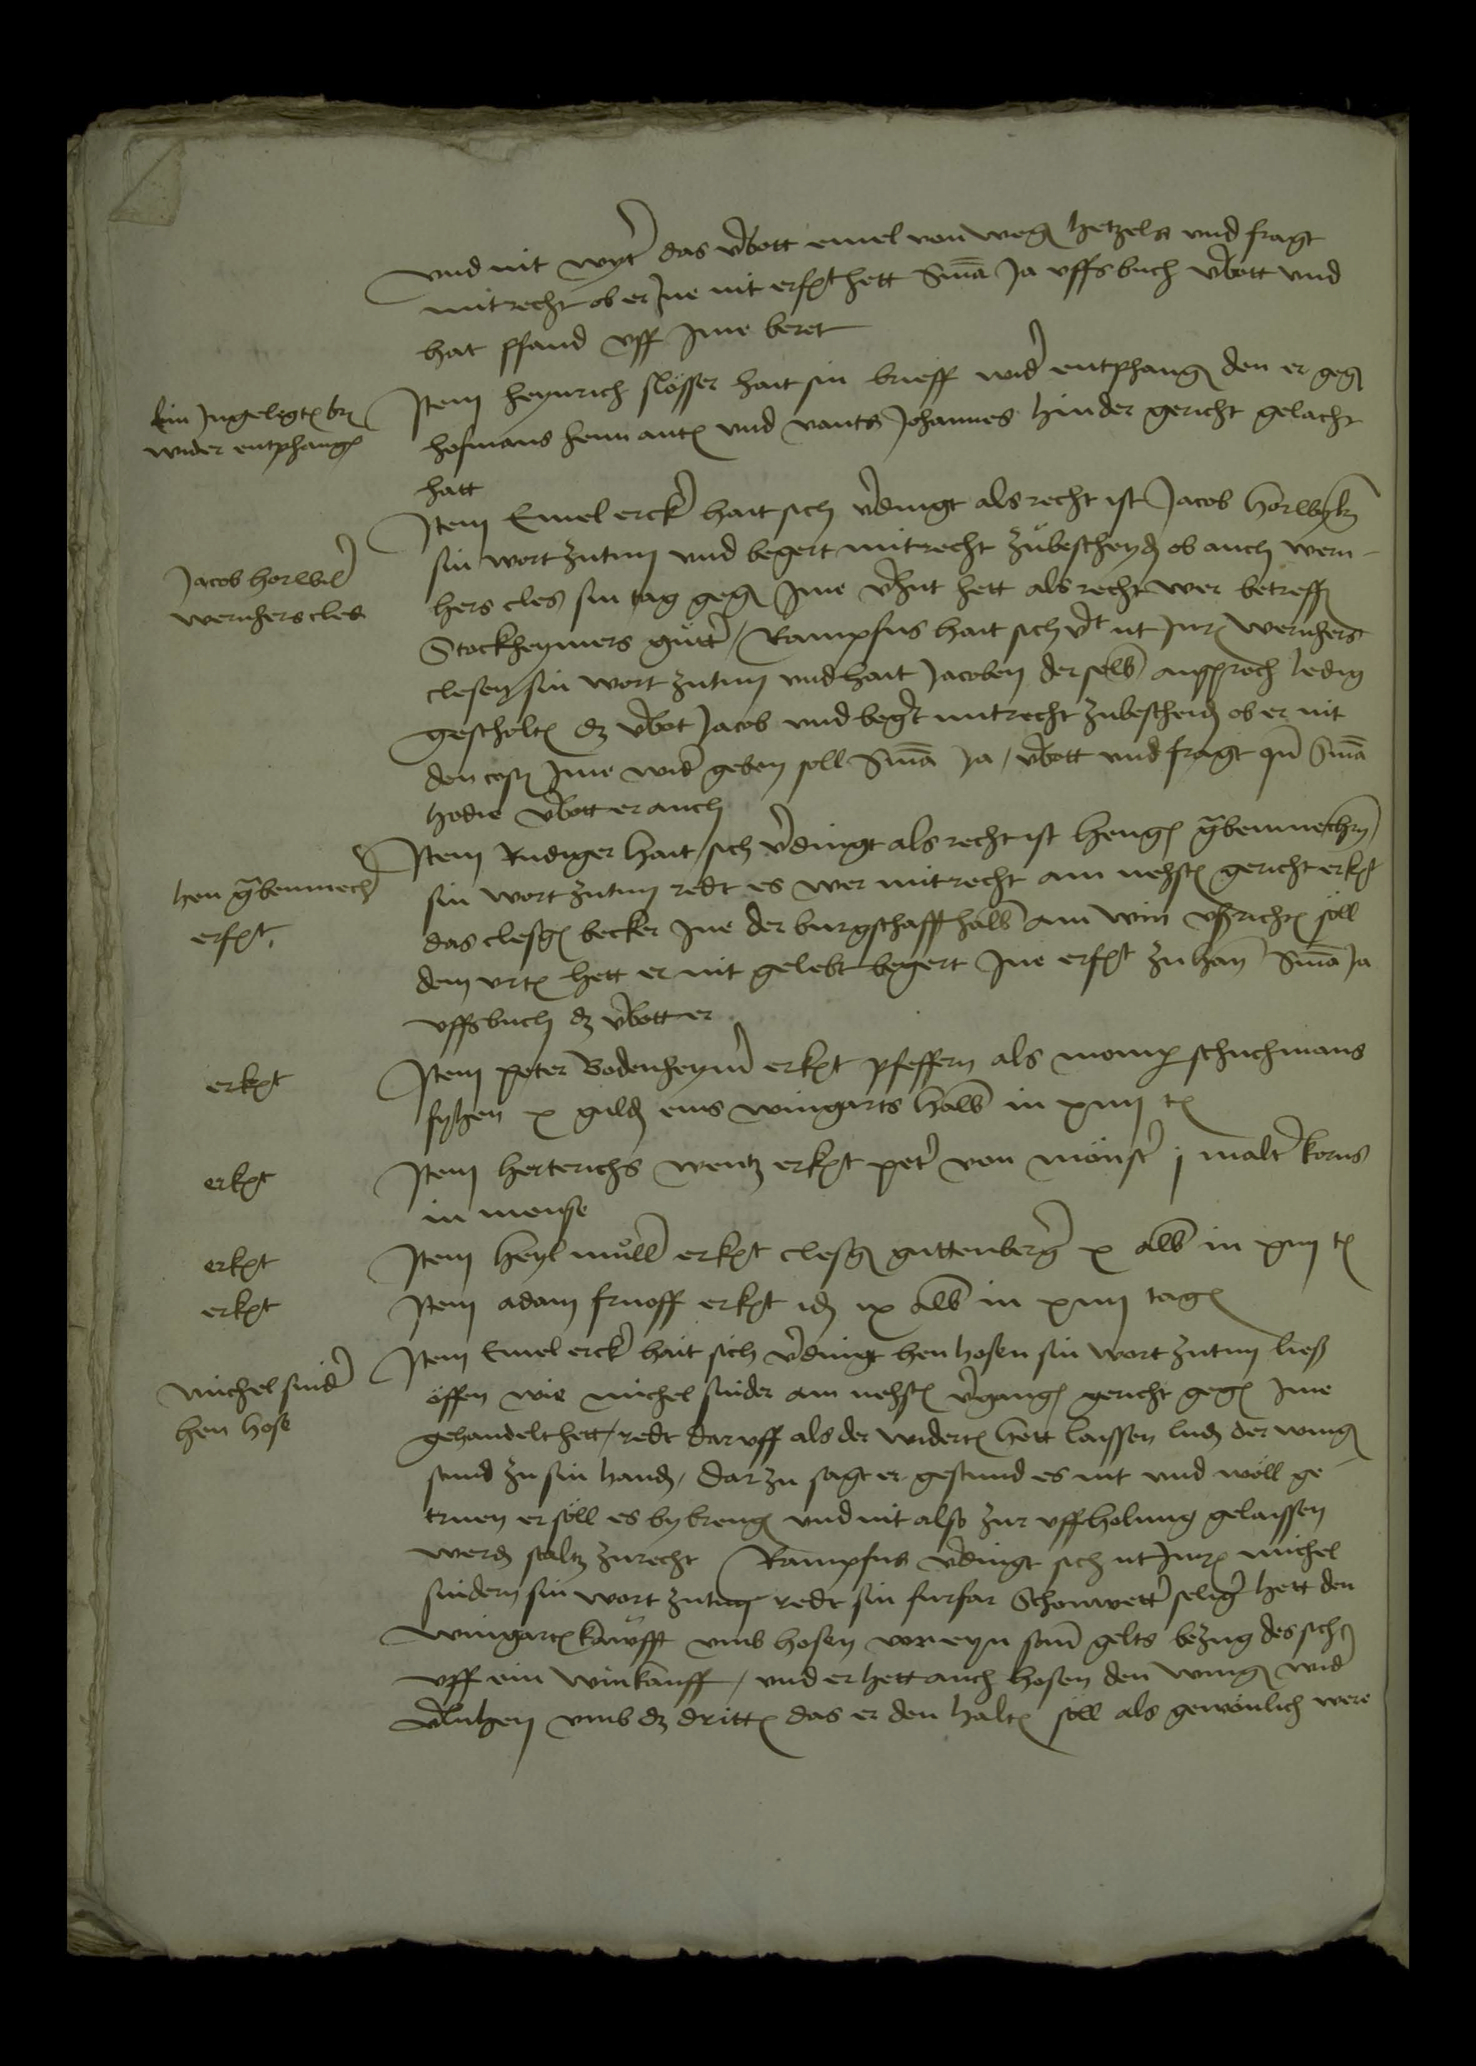 und nit wyt' das v'bott emel von weg(en) hetzels und fragt
mit recht ob er Jne nit erf(olg)t hett S(e)n(tent)ia Ja uffs buch v'bott und
hat pfand uff Jme beret
kin Jngelegt(en) br(ieff)
wider entphang(en)
Item heynrich slosser hait sin brieff wid' entphang(en) den er geg(en)
hofmans henn ant(en) und vants Johannes hinder gericht gelacht
hatt
Jacob horwil'
wernhers cles
Item Emel erck' hait sich v'dingt als recht ist Jacob horwyl'n
sin wort zutun und begert mit recht zubescheyd(en) ob auch wern-
hers cles sin tag geg(en) Jme v'hut hett als recht wer betreff(en)
Stockheymers gutt' / Rampfus hait sich v't ut Jur(is) wernhers
clesen sin wort zutun und hait Jacoben der selb(en) ansproch ledig
gescholt(en) dz v'bot Jacob und beg't mit recht zubescheid(en) ob er nit
den cost(en) Jme wid' geben soll S(e)n(tent)ia Ja / v'bott und fragt q(ua)n(do) S(e)n(tent)ia
hodie v'bott er auch
hen g(ra)benmech'
erf(olg)t
Item Rudiger hait sich v'dingt als recht ist heng(in) g(ra)benmechern
sin wort zutun redt es wer mit recht am nehst(en) gericht erk(an)t
das clesg(in) becker Jne der burgschafft halb am win ussricht(en) soll
dem urt(el) hett er nit gelebt begert Jne erf(olg)t zu han S(e)n(tent)ia Ja
uffs buch dz v'bott er
erk(en)t
Item peter Bodenheym' erk(en)t pfeffern als momp(ar) schuchmans
fyhen x guld(en) eins wingarts halb in xiiij t(agen)
erk(en)t
Item herterichs wentz erk(en)t pet' von monst' j malt' korns
in mense
erk(en)t
Item heyl mull' erk(en)t clesg(in) guttenberg' x alb in xiiij t(agen)
erk(en)t
Item adam fruoff erk(en)t id(em) ix alb in xiiij tag(en)
michel snid'
hen hose
Item Emel erck' hait sich v'dingt hen hosen sin wort zutun ließ
offen wie michel snider am nehst(en) v'gang(en) gericht geg(en) Jme
gehandelt hett / redt dar uff als der widert(eil) hett laissen lud(en) der wing(art)
stund zu sin hand(en) / dar zu sagt er gestund es nit und woll ge-
truen er soll es bybreng(en) und nit also zur uffholung gelaissen
werd(en) staltz zu recht Rampfus v'dingt sich ut Jur(is) michel
snidern sin wort zutun redt sin furfar Schonwett' selig' hett den
wingart(en) kaufft umb hosen vor eyn som' gelts bezug des sich
uff ein winkauff / und er hett auch hosen den wing(art) wid'
v'luhen umb dz dritt(eil) das er den halt(en) soll als gewonlich were